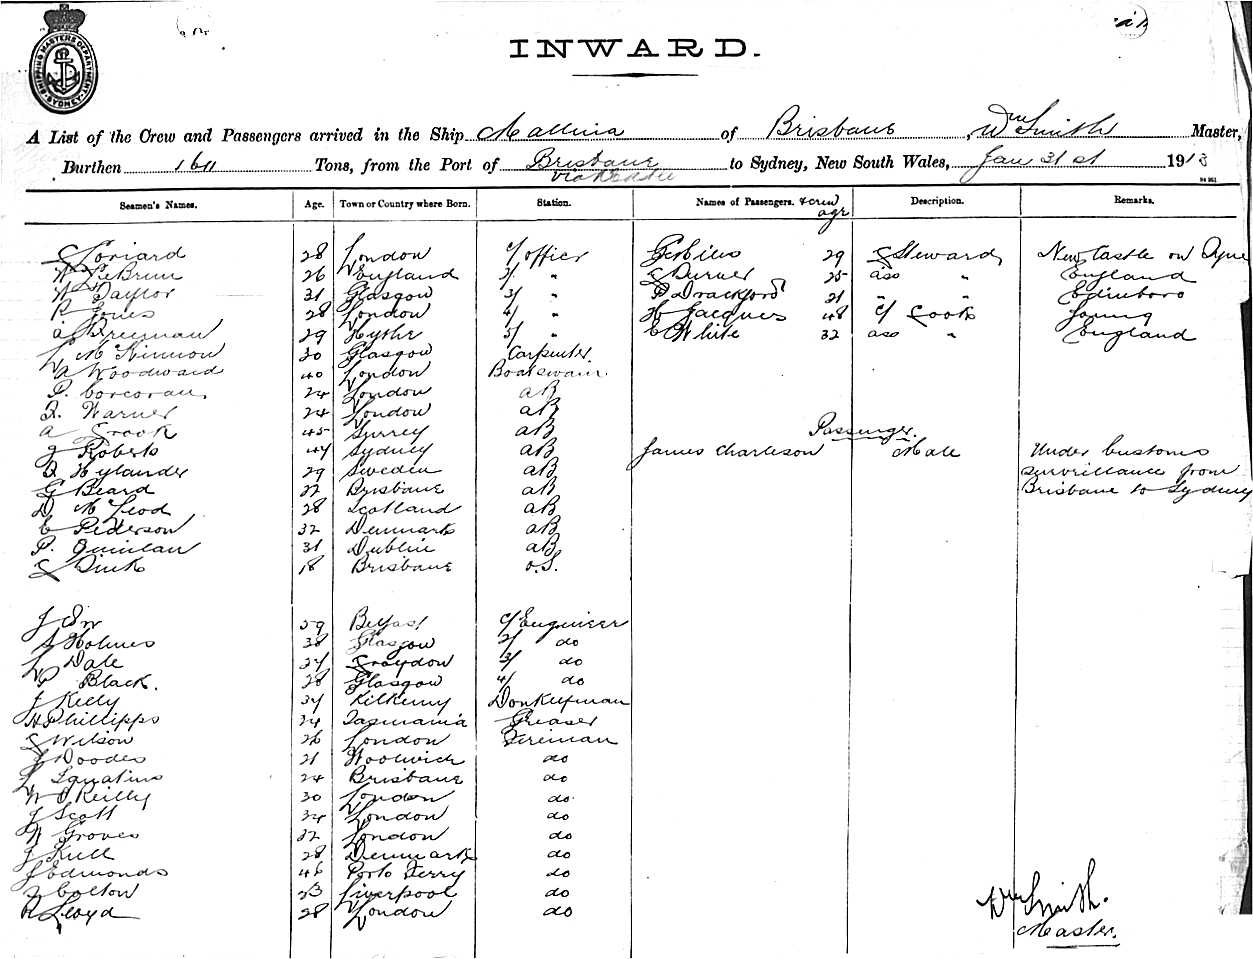 SHIPPING MASTERS DEPARTMENT SYDNEY
INWARD.
A List of the Crew and Passengers arrived in the Ship Mallina of Brisbane, Wm Smith Master,
Burthen Tons, from the Port of Brisbane to Sydney, New South Wales, Jan 31st 1913
via
Seamen's Names. Age. Town or Country where Born. Station. Names of Passengers. & crew Description. Remarks.
age
28 London c/ officer 29 Steward Newcastle on Tyne
W LeBrun 26 England 2/ " 25 ass " England
W Taylor 31 Glasgow 3/ " P Drackford 21 " " Edinboro
R Jones 28 London 4/ " H Jacques 48 c/ Cook
29 Hythe 5/ " C White 32 ass " England
30 Glasgow Carpenter
A Woodward 40 London Boatswain
P. Corcoran 24 London AB
Warner 24 London AB
A Crook 45 Surrey AB
Passenger.
J Roberts 47 Sydney AB James Charleson Male Under Customs
Hylander 29 Sweden AB surveillance from
G Beard 22 Brisbane AB Brisbane to Sydney
D McLeod 28 Scotland AB
C Pederson 32 Denmark AB
P. Quinlan 31 Dublin AB
18 Brisbane O.S.
J Orr 59 Belfast C/Engineer
Holmes 38 Glasgow 2/ do
Dale 27 Croydon 3/ do
P Black. 28 Glasgow 4/ do
J Kelly 37 Kilkenny Donkeyman
H Phillipps 24 Tasmania Greaser
C Wilson 26 London Fireman
21 Woolwich do
Ignatius 24 Brisbane do
W O'Reilly 30 London do
J Scott 34 London do
W Groves 32 London do
J Kull 28 Denmark do
J Edmonds 46 Porto Ferry do
Colton 23 Liverpool do
R Lloyd 28 London do
Wm Smith.
Master.